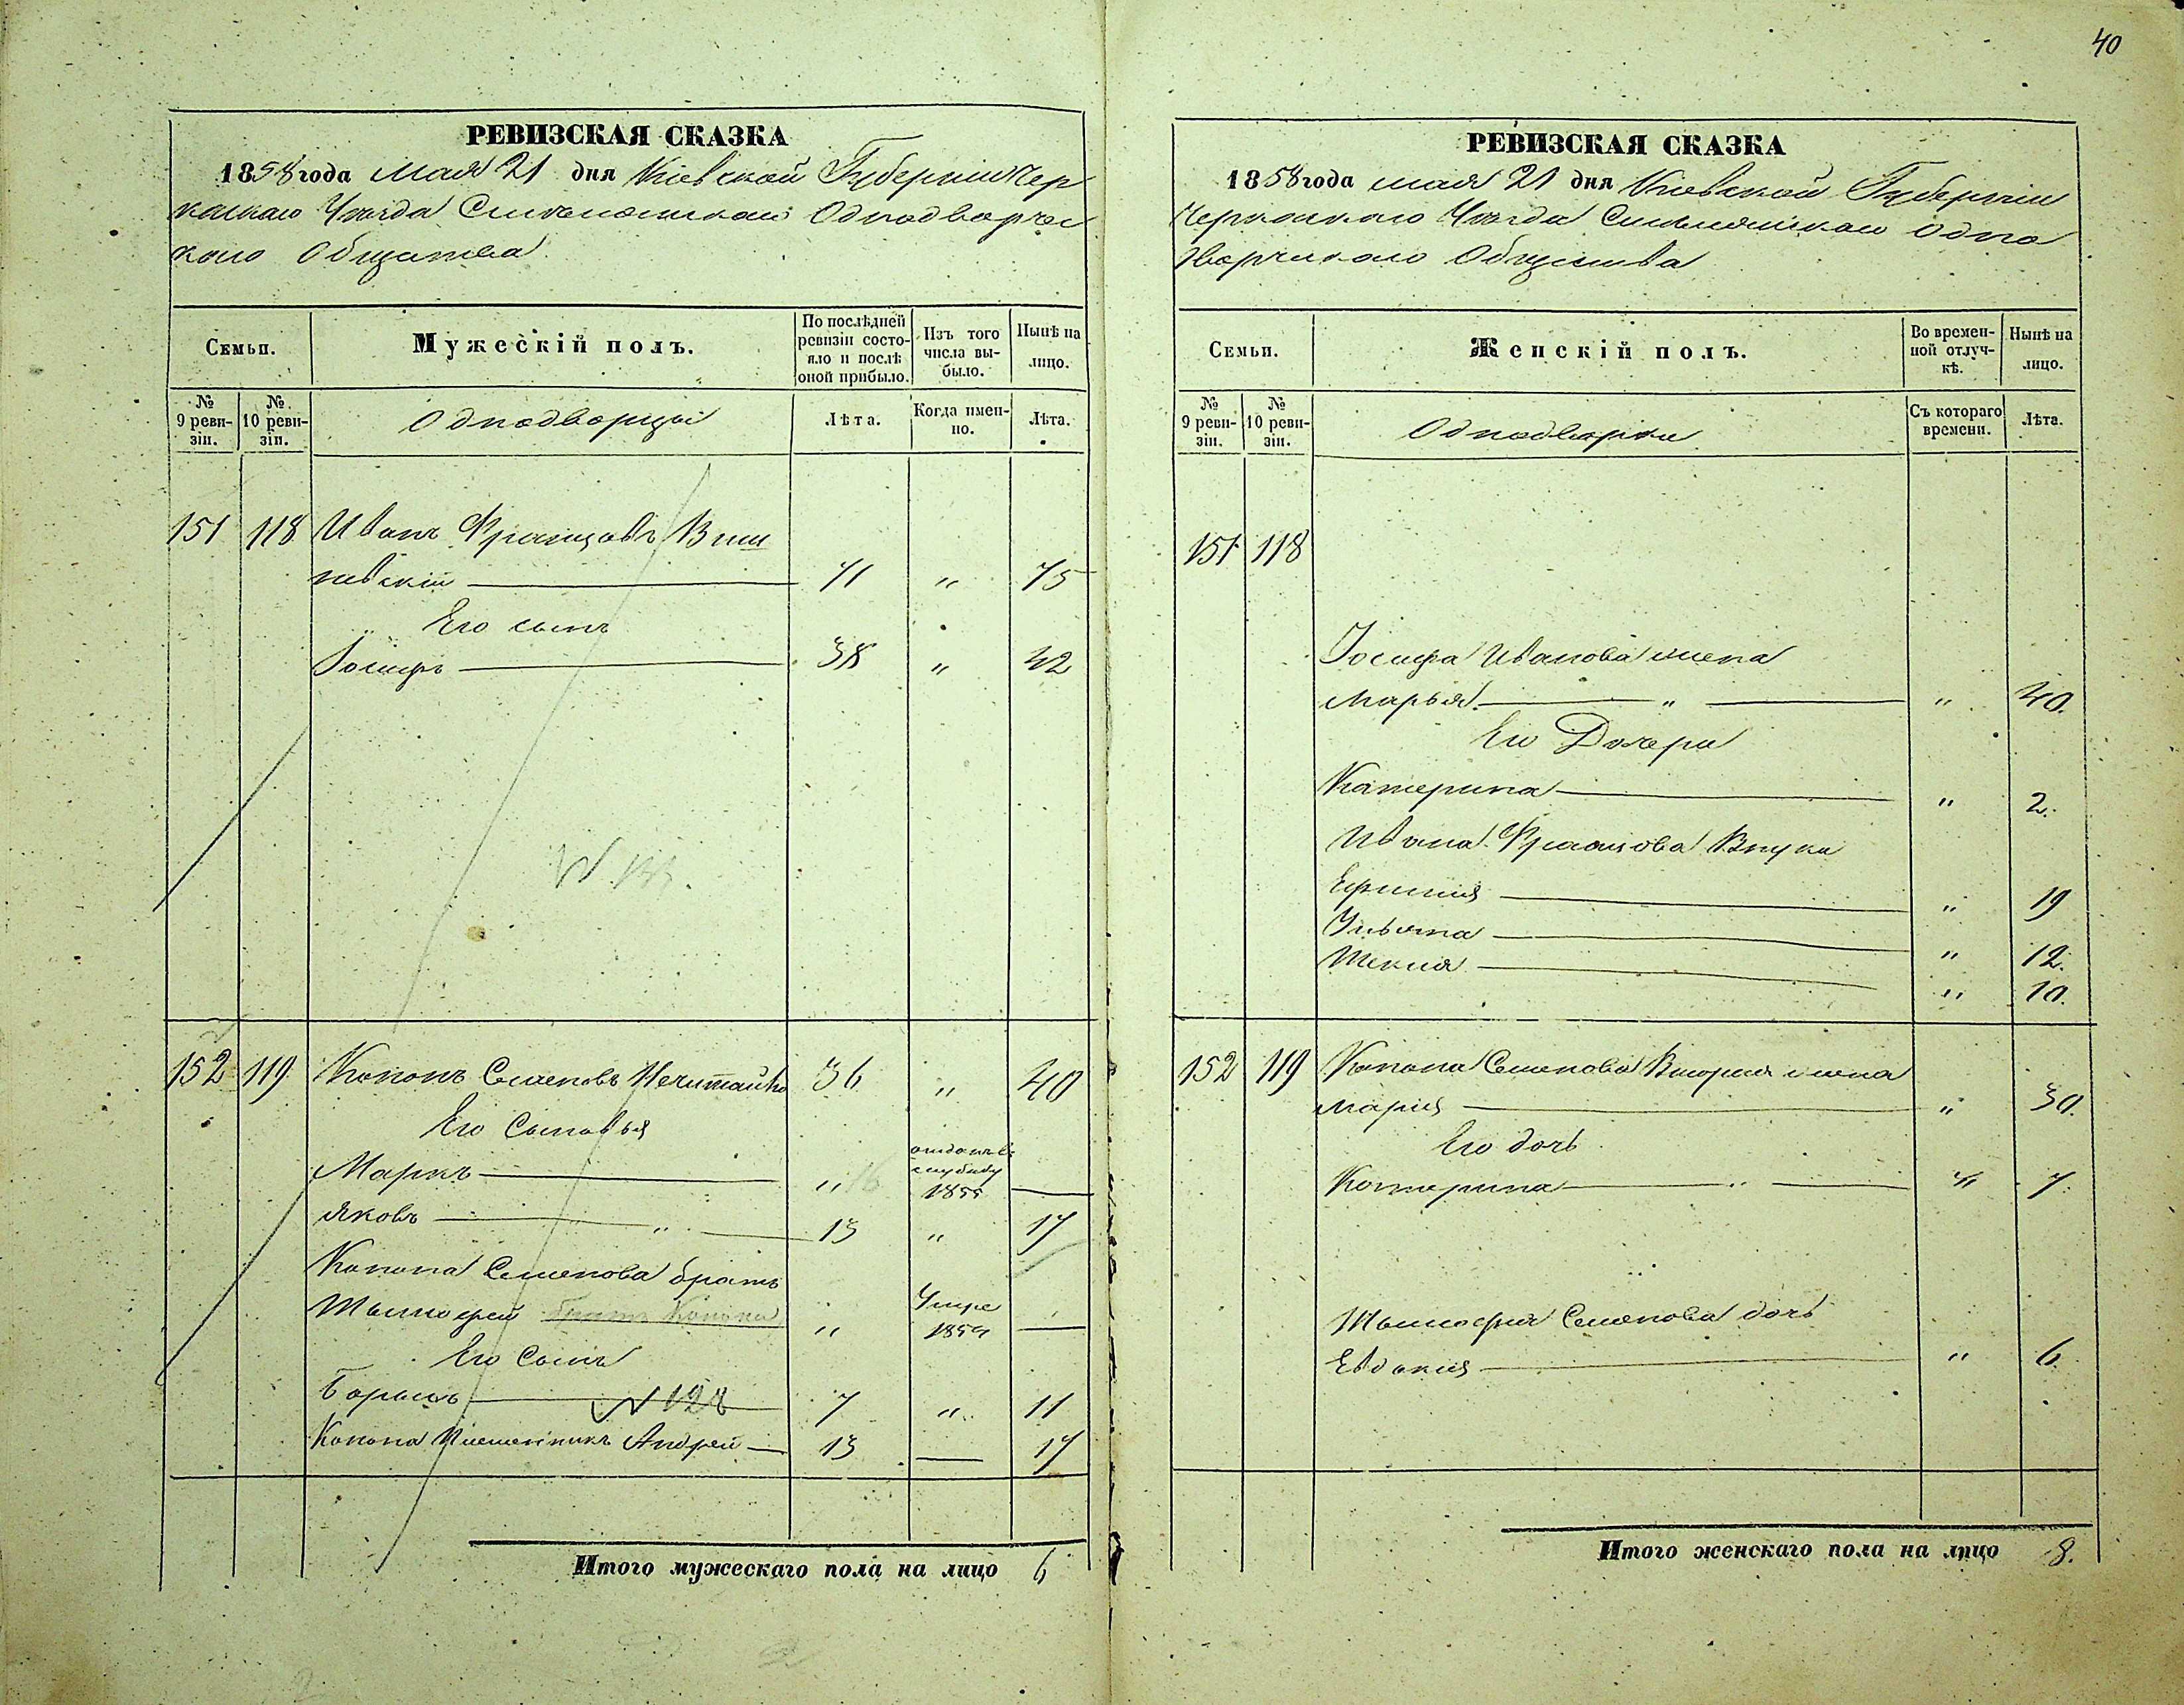 40
РЕВИЗСКАЯ СКАЗКА
1858 года Мая 21 дня Кіевской Губерніи Чер
каскаго Уѣзда Смѣлянскаго Однодворчес
каго Общества
Семьи.
Мужескій полъ.
По послѣдней ревизіи состояло и послѣ оной прибыло.
Изъ того числа выбыло.
Нынѣ на лицо.
№ 9 ревизіи.
№ 10 ревизіи.
Однодворцы
Лѣта.
Когда именно.
Лѣта.
151 118 Иванъ Францовъ Виш
невскій 71 " 75
Его сынъ
Іосифъ 38 " 42
152 119 Кононъ Семеновъ Нечитайло 36 " 40
Его Сыновья
отданъ въ
службу
Маркъ " 16 1855
Яковъ " 13 " 17
Конона Семенова братъ
Тымофей братъ Конона " Умре
185
Его Сынъ
Борисъ N 128 7 " 11
Конона Племенникъ Андрей 13 17
Итого мужескаго пола на лицо 6
РЕВИЗСКАЯ СКАЗКА
1858 года мая 21 дня Кіевской Губерніи
Черкаскаго Уѣзда Смѣлянскаго Одно
дворческаго Общества
Семьи.
Женскій полъ.
Во временной отлучкѣ.
Нынѣ на лицо.
№ 9 ревизіи.
№ 10 ревизіи.
Однодворки
Съ котораго времени.
Лѣта.
151 118
Іосифа Иванова жена
Марья " " 40.
Его Дочери
Катерина " 2.
Ивана Францова Внуки
Ефимія " 19
Ульяна " 12.
Текля " 10.
152 119 Конона Семенова Вторая жена
Марія " 30.
Его дочь
Катерина " " 7.
Тымофея Семенова дочь
Евдокія " 6.
Итого женскаго пола на лицо 8.